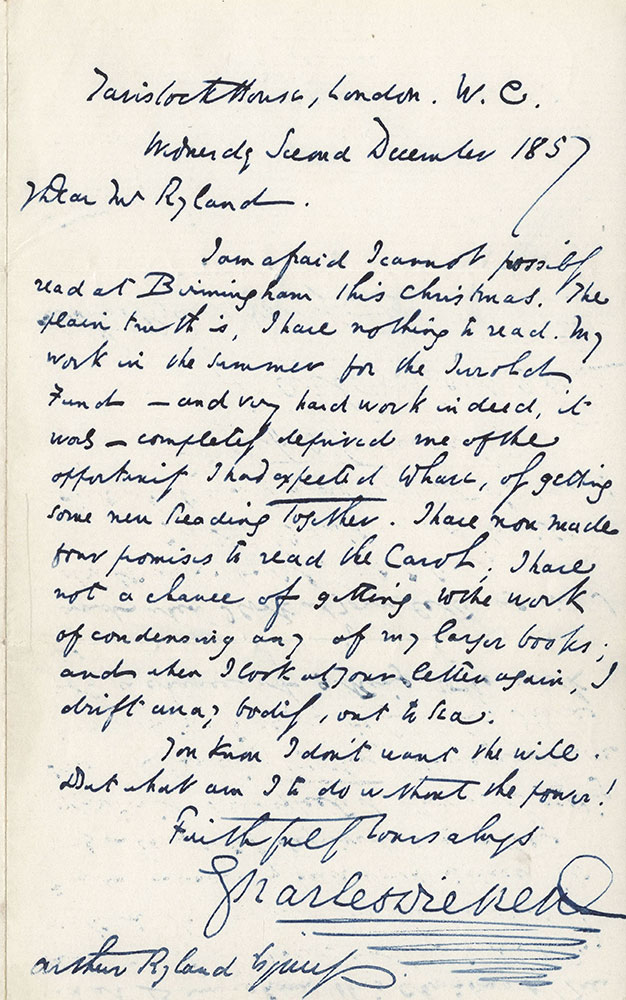 Tavistock House, London. W. C.
Wednesday Second December 1857
My Dear Mr Ryland.
I am afraid I cannot possibly
read at Birmingham this Christmas. The
plain truth is, I have nothing to read. My
work in the summer for the Jerrold
Fund – and very hard work indeed, it
was – completely deprived me of the
opportunity I had expected to have, of getting
some new Reading together. I have now made
four promises to read the Carol; I have
not a chance of getting to the work
of condensing any of my larger books;
and when I look at your letter again, I
drift away, bodily, out to sea.
You know I don't want the will.
But what am I to do without the power!
Faithfully Yours always
Charles Dickens
Arthur Ryland Esquire